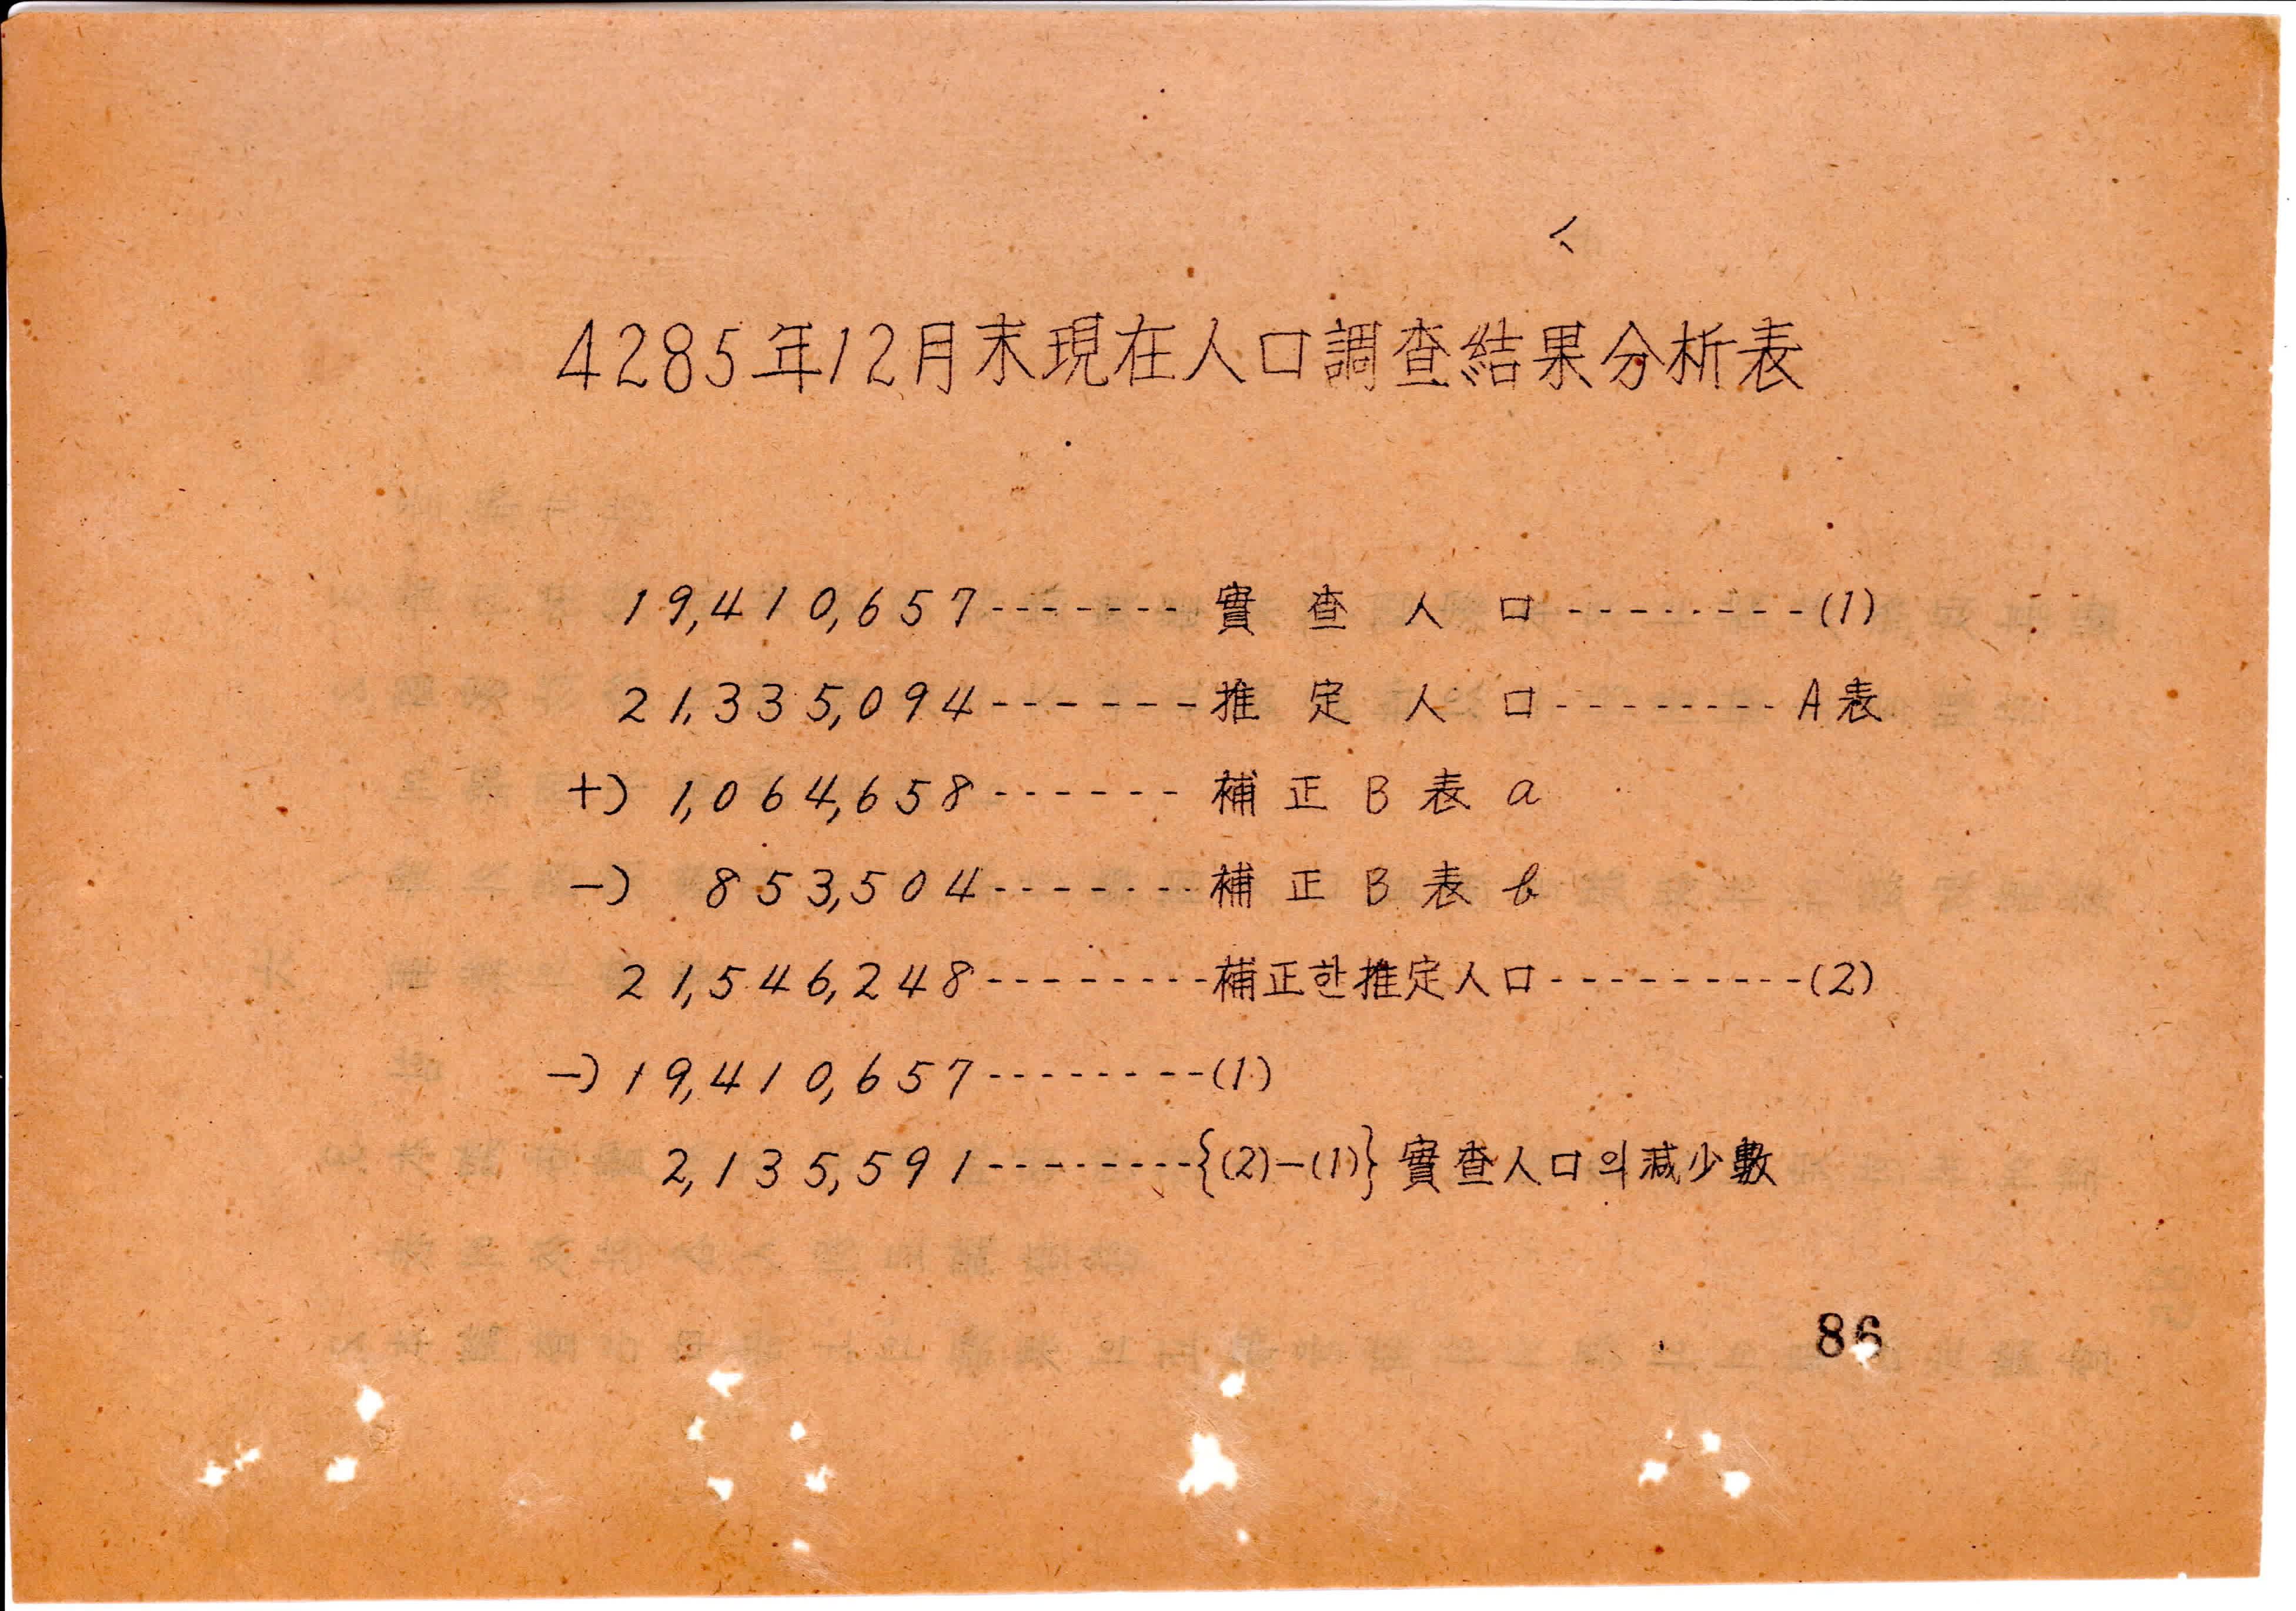 4285年12月末現在人口調査結果分析表
19,410,657-------實査人口--------(1)
21,335,094------推定人口--------A表
+) 1,064,658------補正B表a
-) 853,504-------補正B表b
21,546,248--------補正한推定人口----------(2)
-) 19,410,657--------(1)
2,135,591--------{(2)-(1)}實査人口의減少數
86